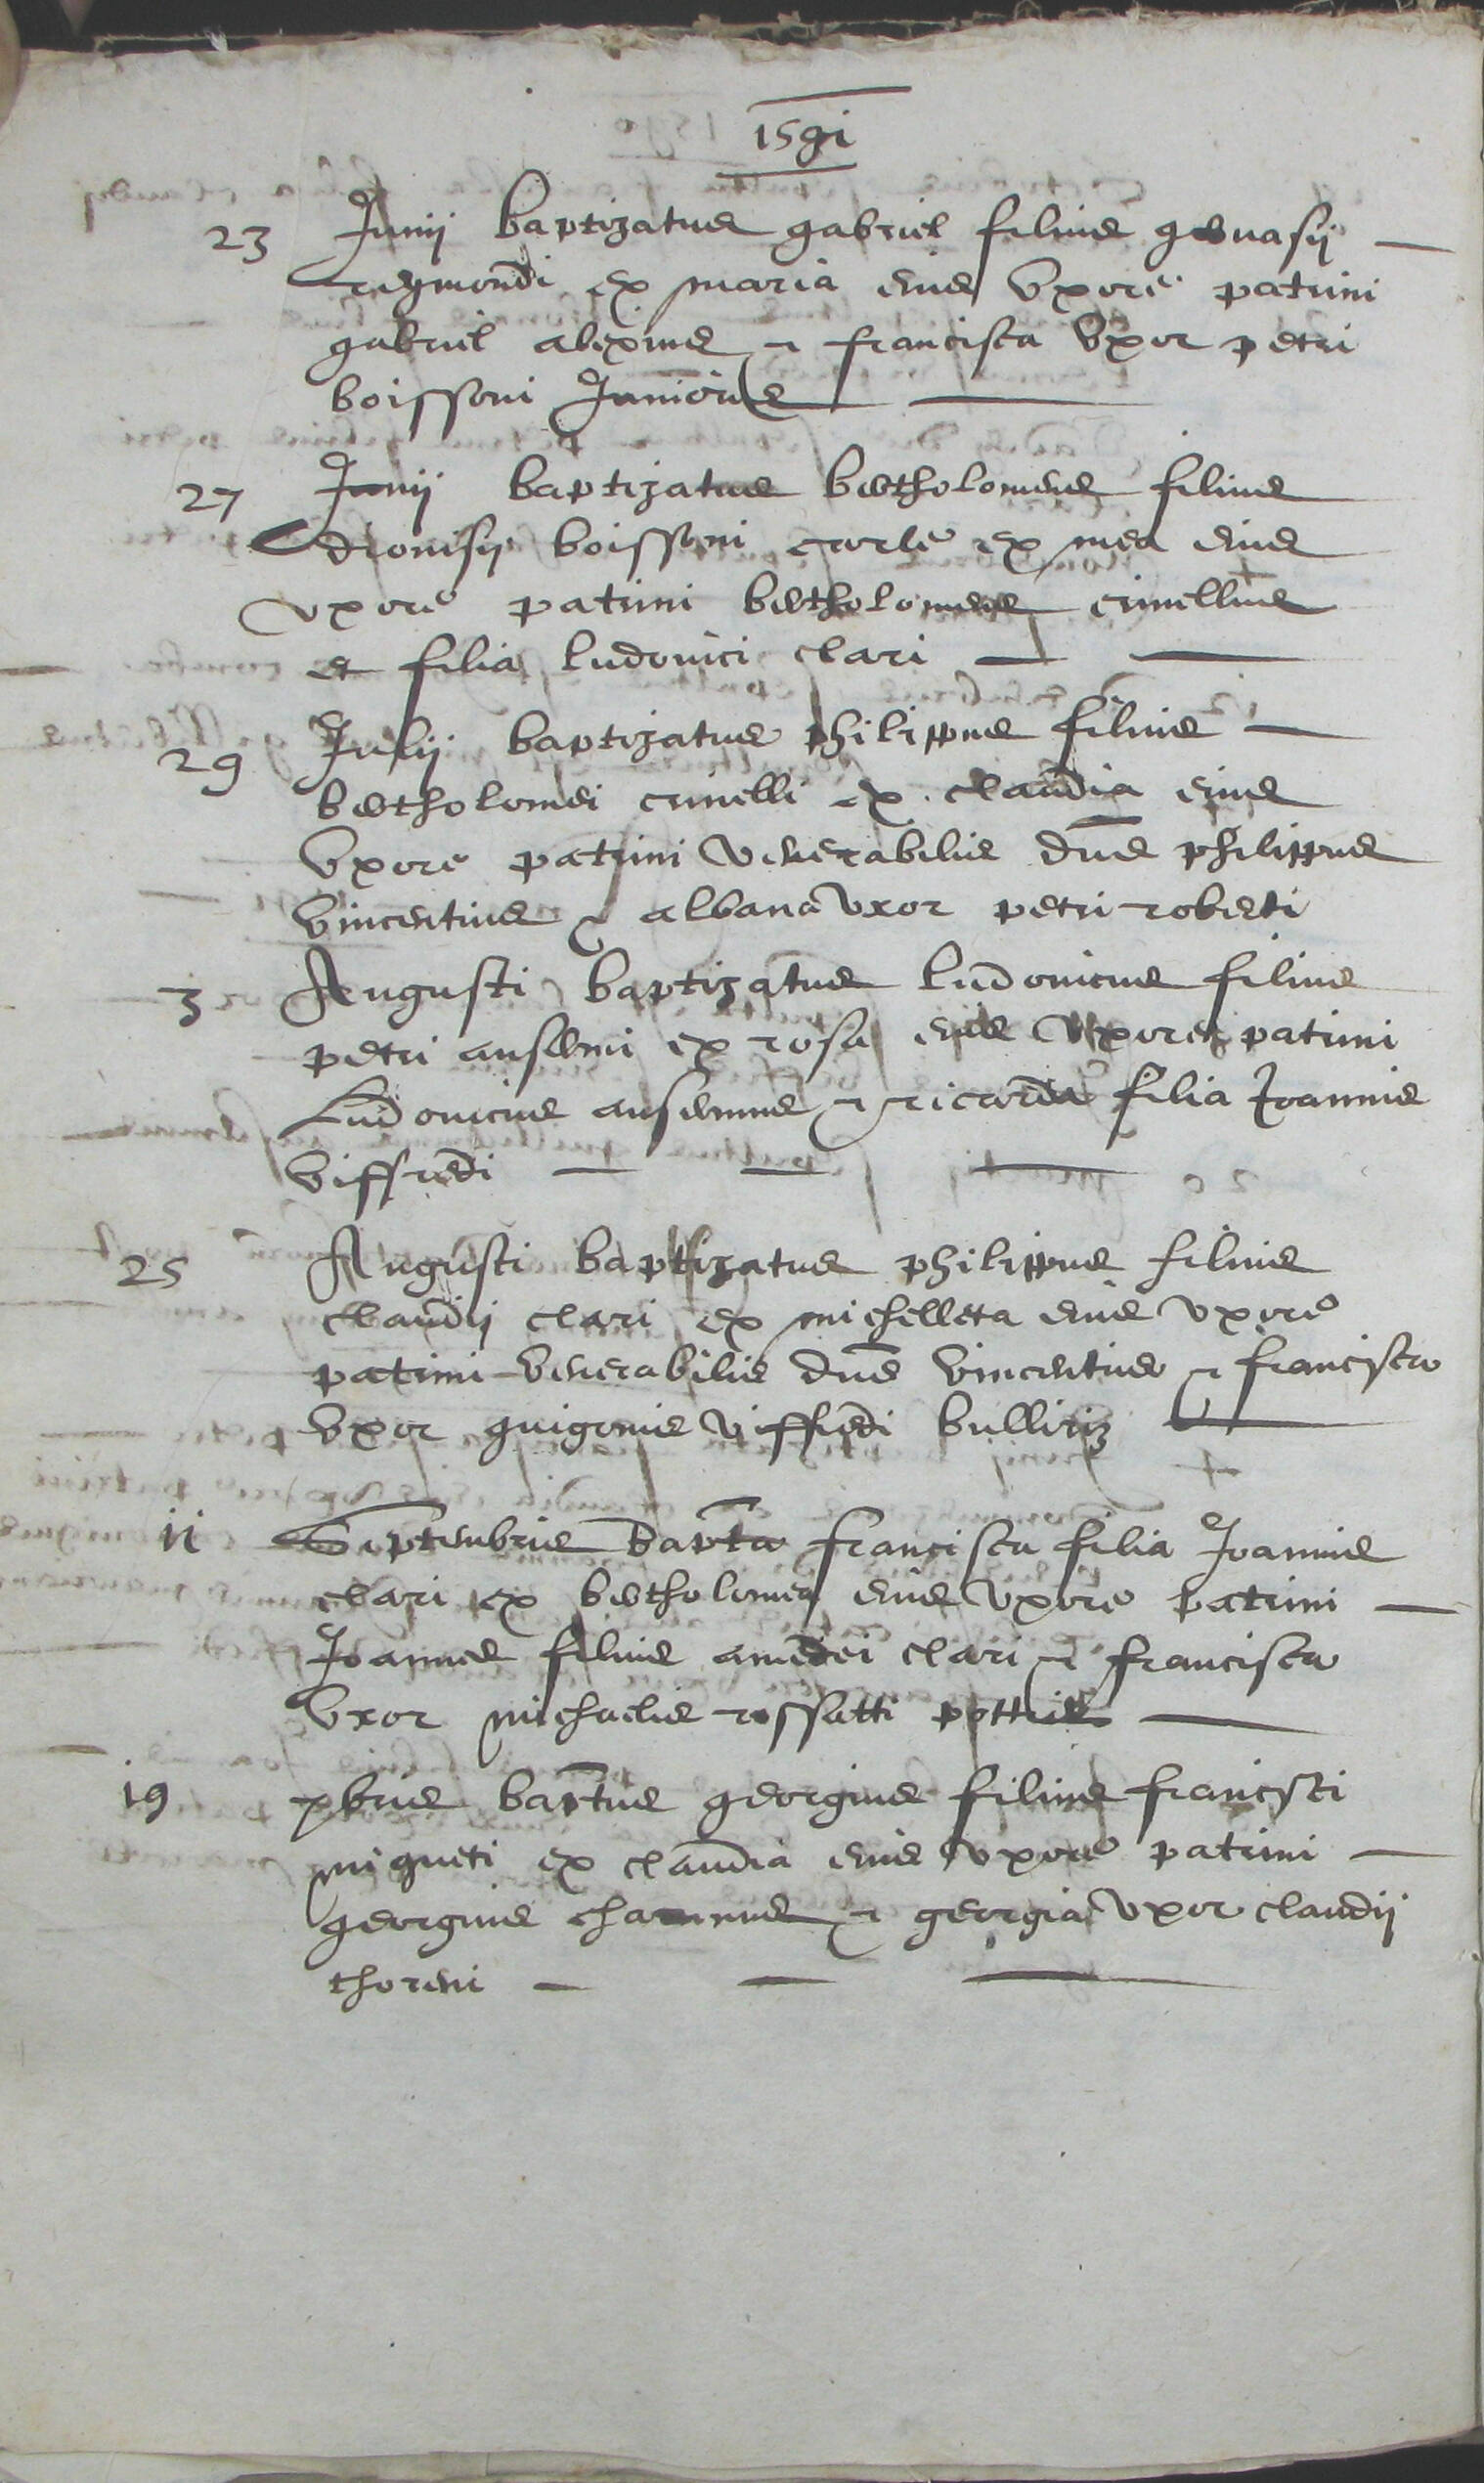 1591
23 Junii baptizatus gabriel filius gervasii
reymondi ex maria eius uxore patrini
gabriel alexius et francisca uxor petri
boissoni Junioris
27 Junii baptizatus bertholomeus filius
dionisii boissoni carle ex mea eius
uxore patrini bertholomeus crinellus
et filia ludovici clari
29 Julii baptizatus philippus filius
bertholomei crinelli ex claudia eius
uxore patrini venerabilis dns philippus
vincentius et albana uxor petri roberti
3 Augusti baptizatus ludovicus filius
petri anselmi ex rosa eius uxore patrini
Ludovicus anselmus et ricarda filia Joannis
viffredi
25 Augusti baptizatus philippus filius
claudii clari ex michelleta eius uxore
patrini venerabilis dns vincentius et francisca
uxor guigonis viffredi
11 Septembris bapta francisca filia Joannis
clari ex bertholomea eius uxore patrini
Joannes filius amedei clari et francisca
uxor michaelis rossatti
19 xbris baptus georgius filius francisci
migueti ex claudia eius uxore patrini
georgius et georgia uxor claudii
thoreni